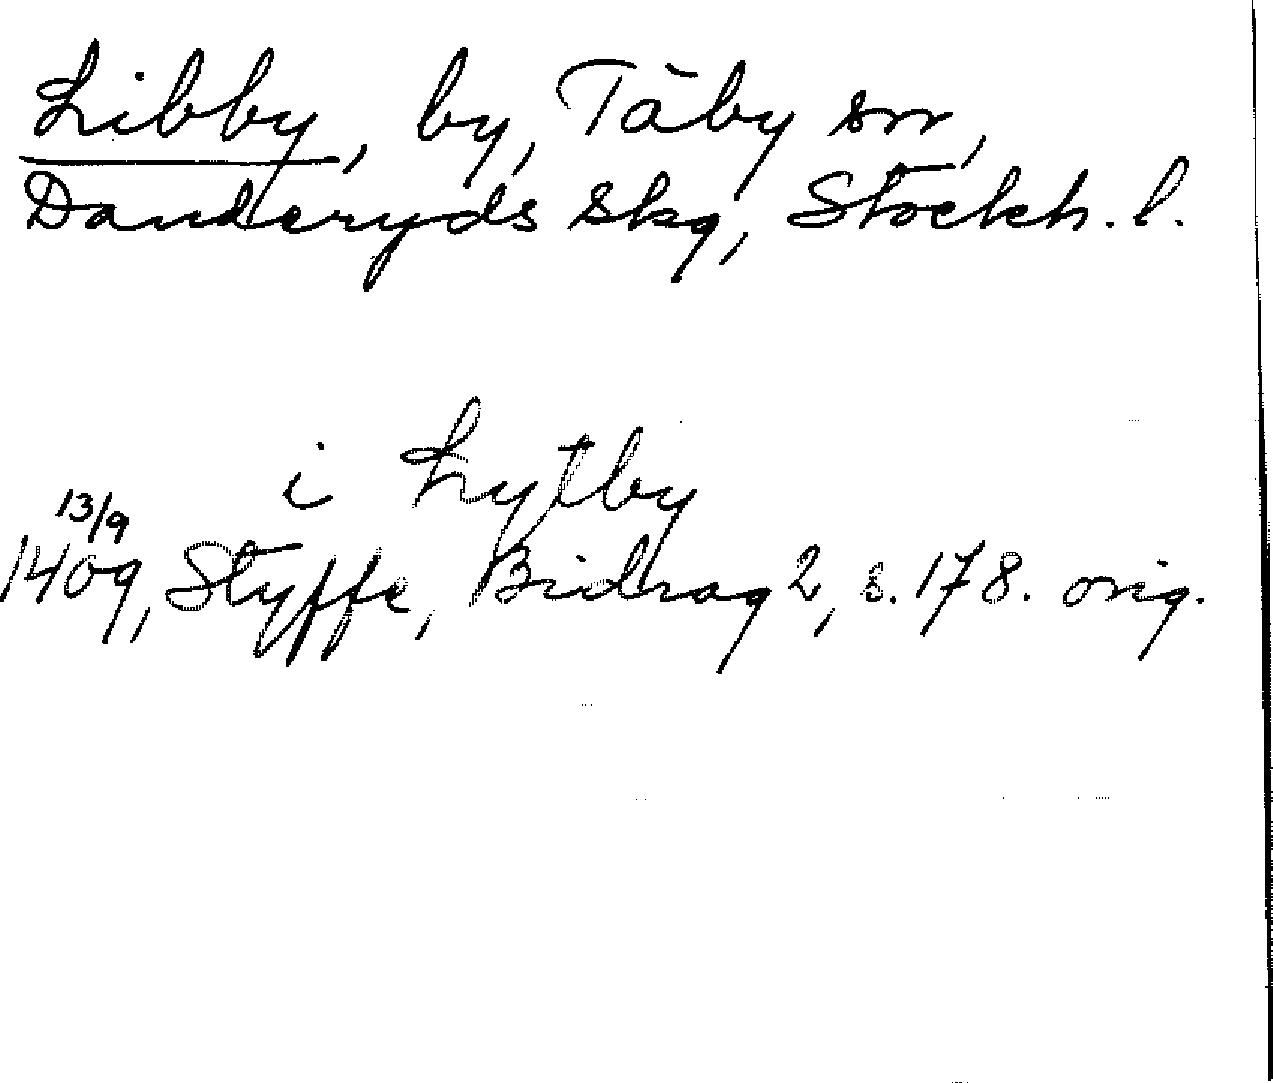 Libby, by, Täby sn,
Danderyds skg, Stockh. l.
i Lytby
13/9
1409, Styffe, Bidrag 2, s. 178. orig.